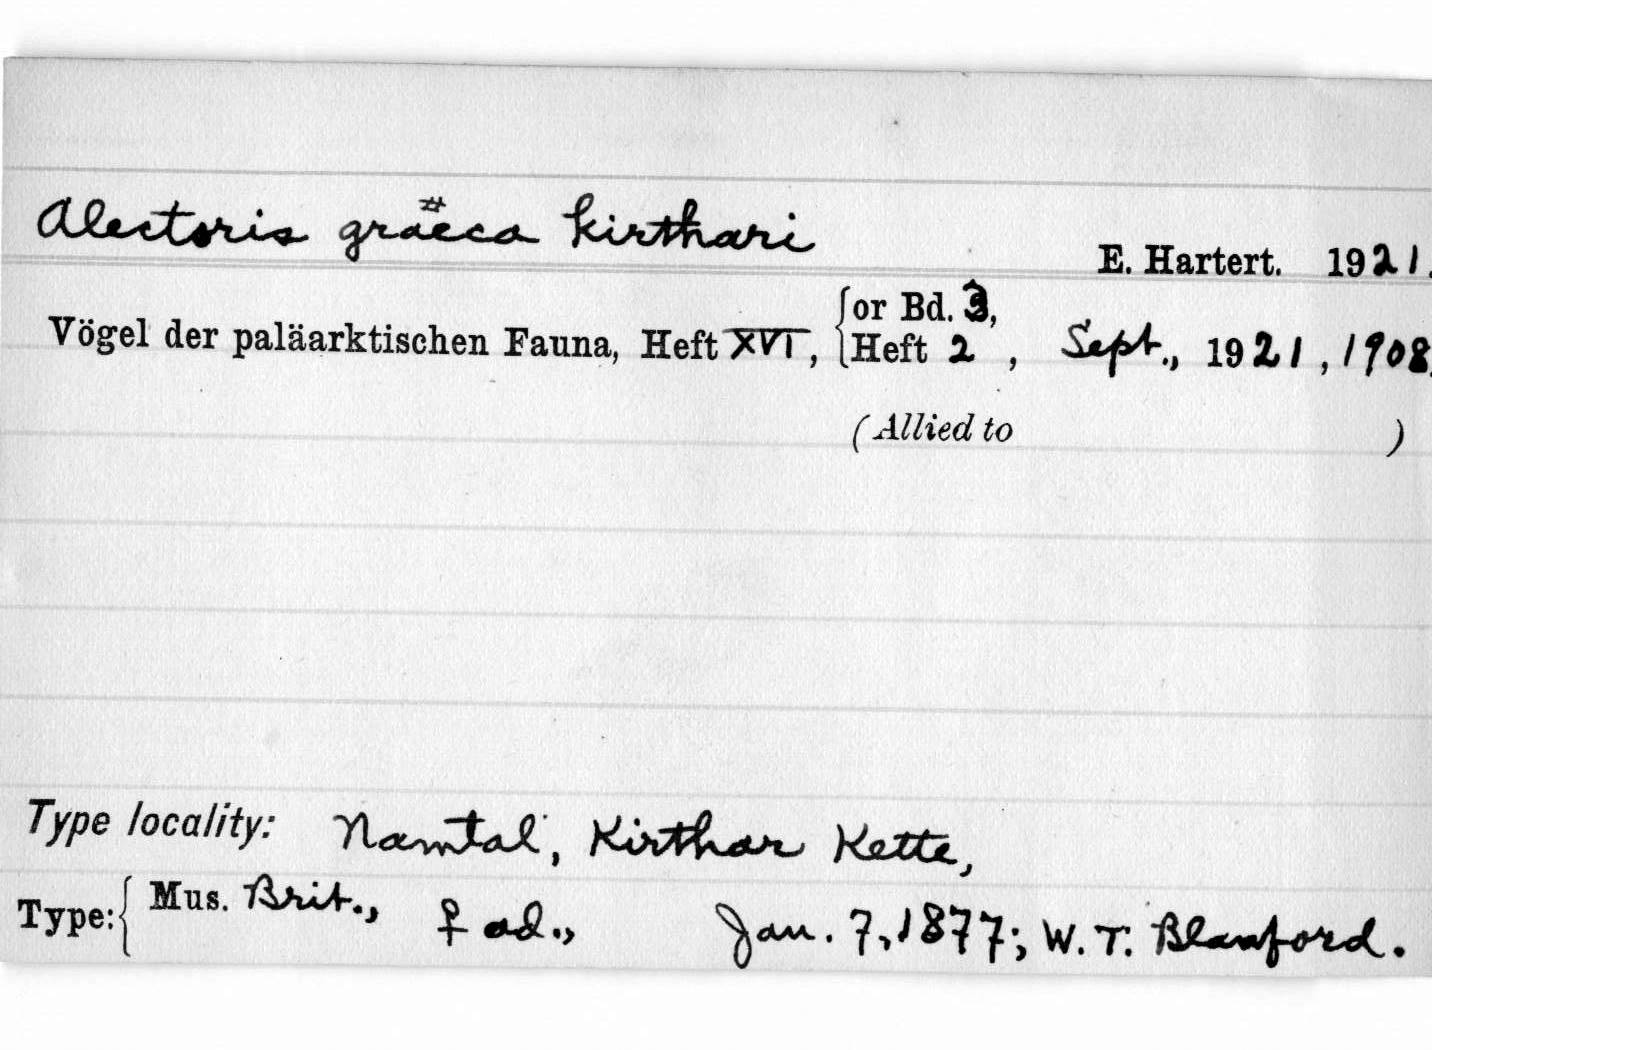 Alectoris graeca kirthari
E. Hartert. 1921.
Vögel der paläarktischen Fauna, Heft XVI, {or Bd. 3, Heft 2, Sept., 1921, 1908.
(Allied to )
Type locality: Namtal, Kirthar Kette,
Type: { Mus. Brit., ♀ ad., Jan. 7, 1877; W. T. Blanford.